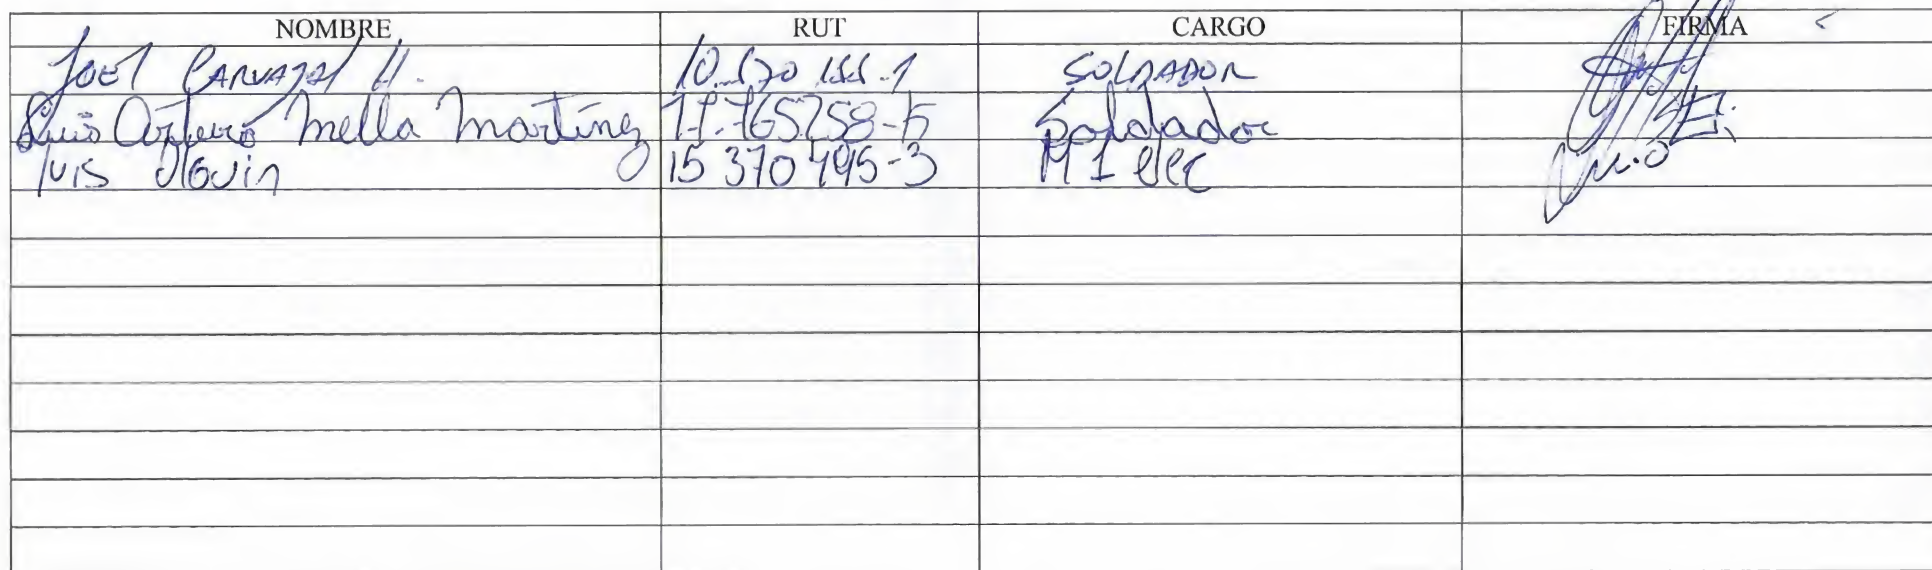 NOMBRE RUT CARGO FIRMA
JOEL CARVAJAL H. SOLDADOR
Luis Arturo Mella Martínez 17.765.758-5 Soldador
luis olguin 15 370 495-3 M 1 elec